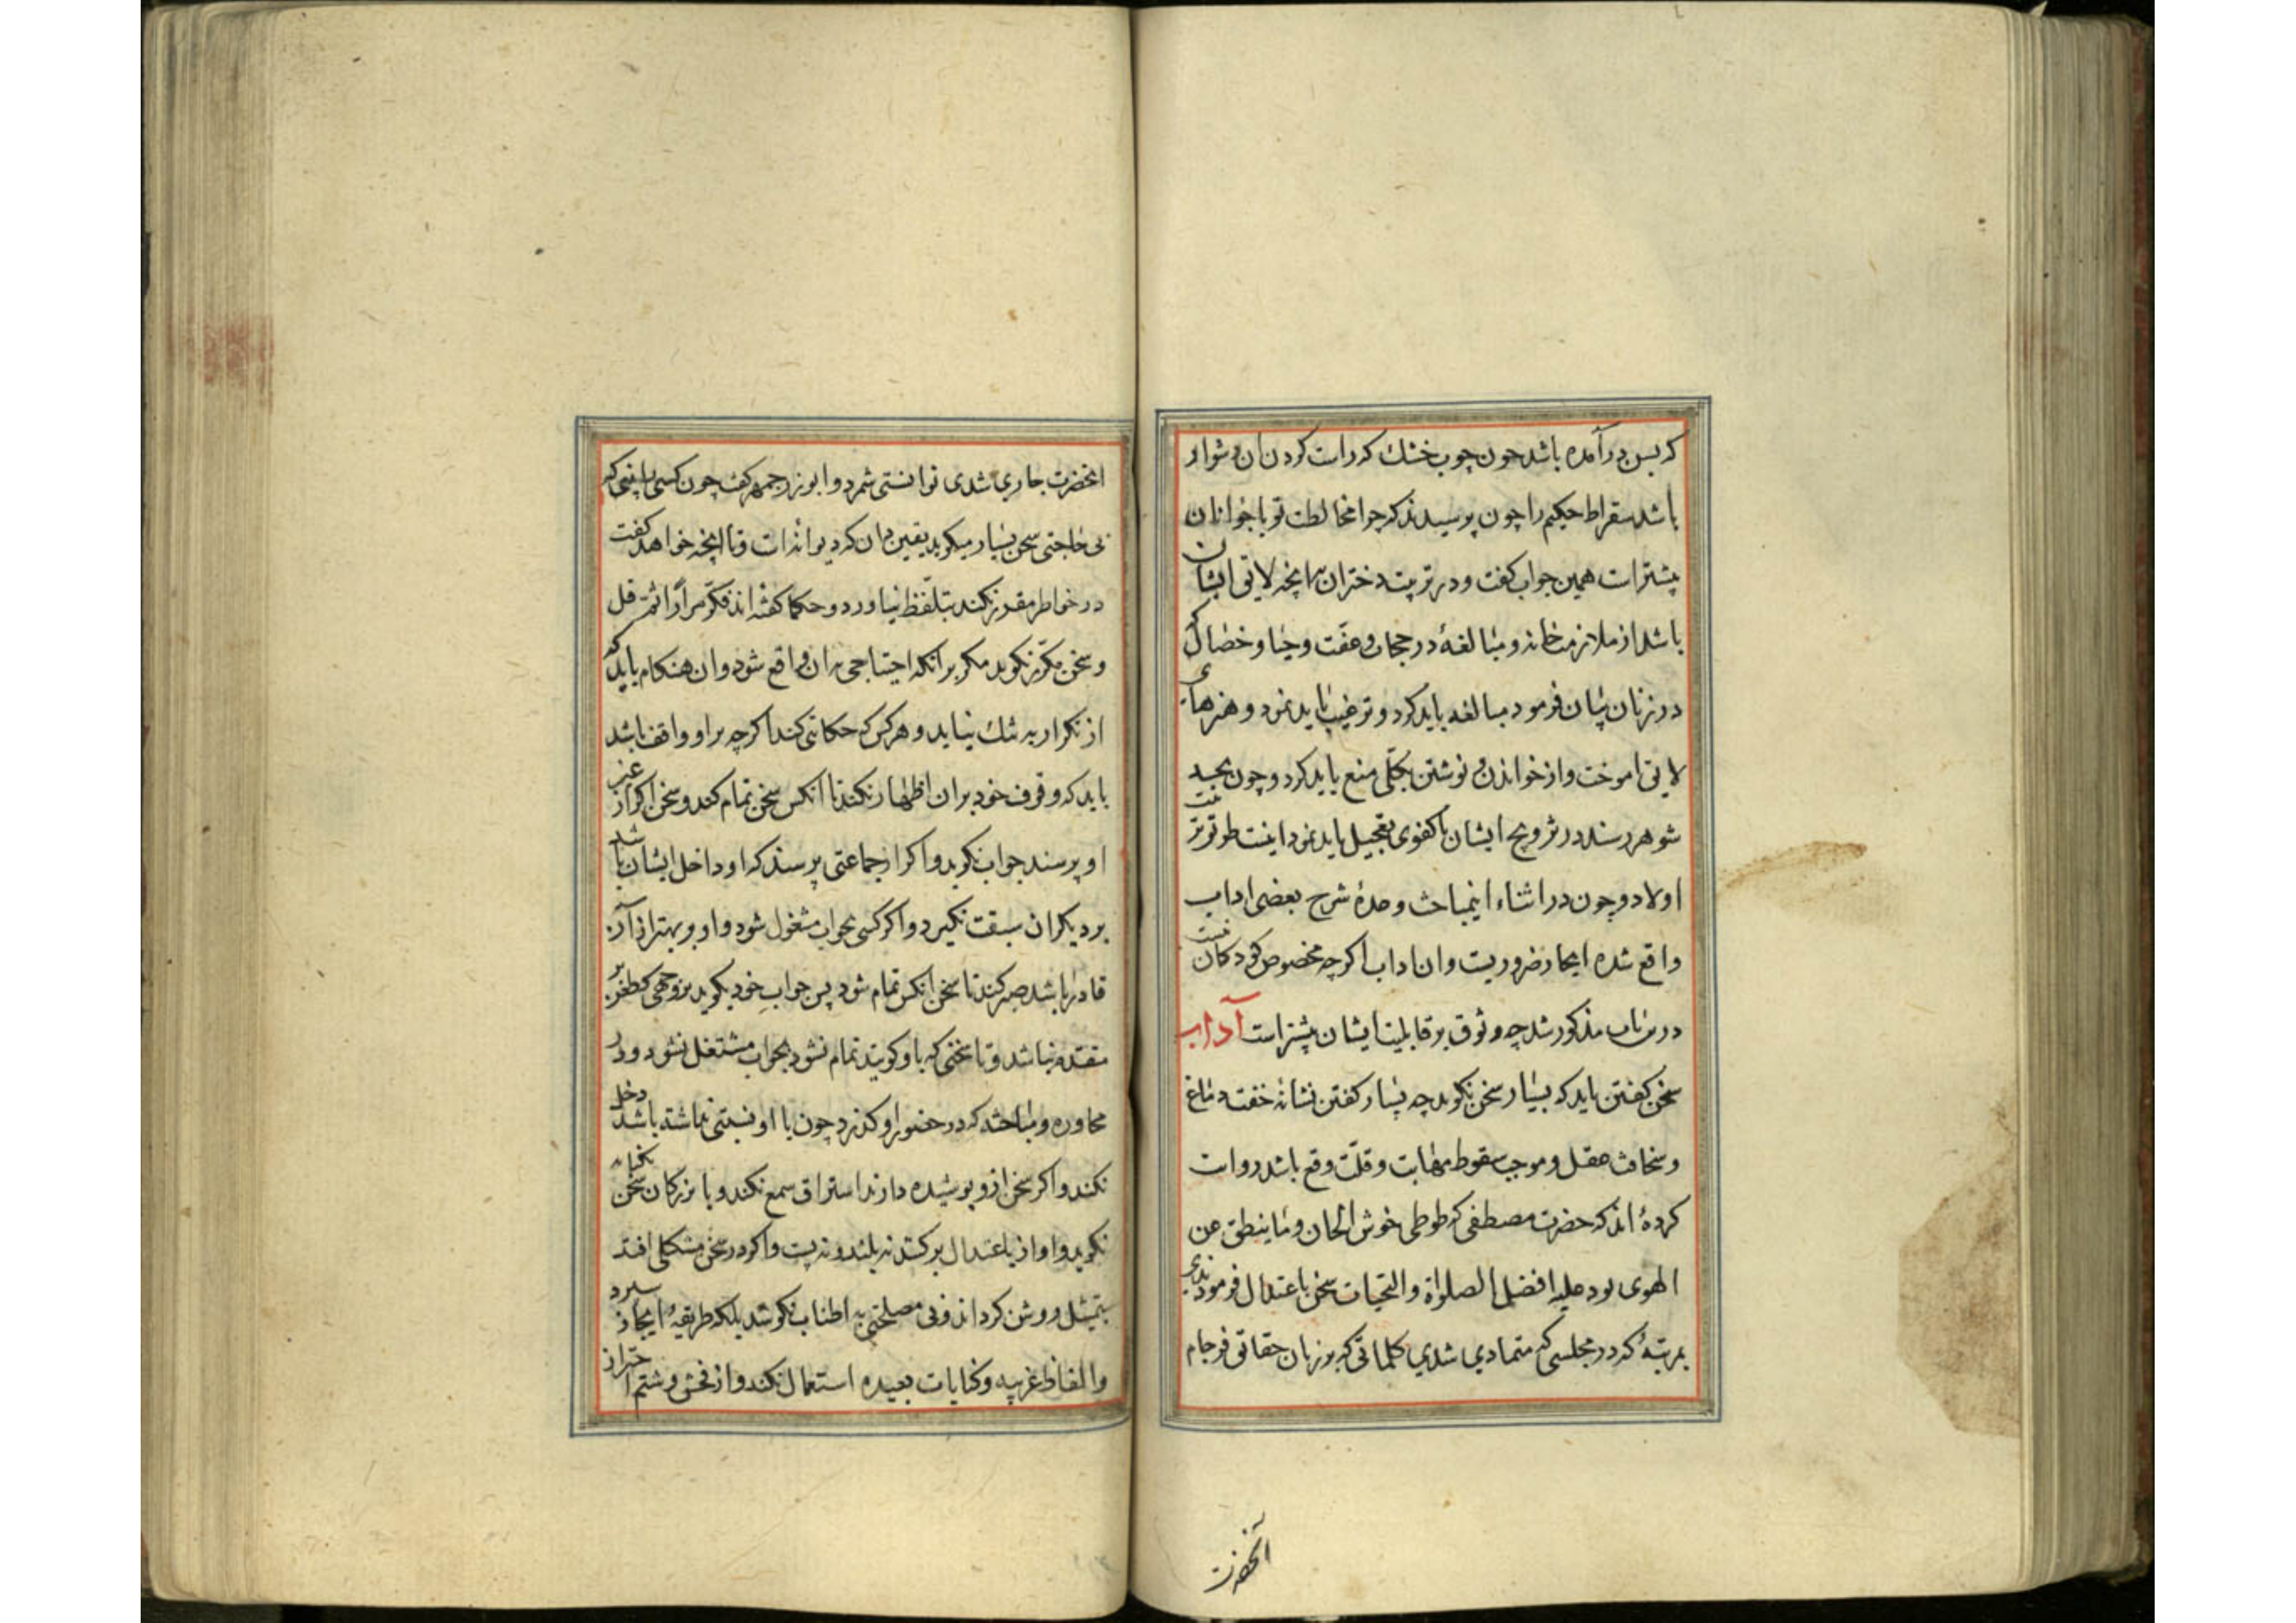 که بسن در آمده باشد چون چوب خشک که راست کردن ان دشوار
باشد سقراط حکیم را چون پرسیدند که چرا مخالطت تو با جوانان
بیشتر است همین جواب گفت و در تربیت دختران بهرانچه لایق ایشان
باشد از ملازمت خانه و مبالغهٔ در حجاب و عفّت و حیا و خصال که
در زنان بیان فرمود مبالغه باید کرد و ترغیب باید نمود و هنرهای
لایق اموخت و از خواندن و نوشتن بکلّی منع باید کرد و چون بحد
شوهر رسند در تزویج ایشان با کفوی تعجیل باید نمود اینست طریق تربیت
اولاد و چون در اثناء اینمباحث وعدهٔ شرح بعضی اداب
واقع شده ایجا ضروریست و ان اداب اکرچه مخصوص کودکان نیست
درین باب مذکور شد چه وثوق بر قابلیت ایشان بیشتر است آداب
سخن کفتن باید که بسیار سخن نکوید چه بسیار کفتن نشانه خفت دماغ
و سخافت عقل و موجب سقوط مهابت و قلّت وقع باشد روایت
کردهٔ اند که حضرت مصطفی که طوطی خوش الحان وما ینطق عن
الهوی بود علیه افضل الصلواة والتحیات سخن باعتدال فرمودندی
بمرتبهٔ که در مجلسی که متمادی شدی کلماتی که بر زبان حقایق فرجام
آنحضرت
انحضرت جاری شدی توانستی شمرد و ابوزرجمهر کفت چون کسی را بینی که
بی حاجتی سخن بسیار میکوید یقین دان که دیوانه است و تا انچه خواهد کفت
در خواطر مقرر نکند بتلفّظ نیاورد و حکما کفته اند فکّر مراراً ثمّ قل
و سخن مکرّر نکوید مکر برانکه احتیاجی بدان واقع شود و ان هنکام باید که
از تکرار به تنک نیاید و هر کس که حکایتی کند اکرچه بر او واقف باشد
باید که وقوف خود بر ان اظهار نکند تا انکس سخن تمام کند و سخن اکر از غیر
او پرسند جواب نکوید و اکر از جماعتی پرسند که او داخل ایشان باشد
بر دیکران سبقت نکیرد و اکر کسی بجواب مشغول شود و او بر بهتر از آن
قادر باشد صبر کند تا سخن انکس تمام شود پس جواب خود بکوید بر وجهی که طعن بر
متقدم نباشد و تا سخنی که با او کویند تمام نشود بجواب مشتغل نشود و در
محاوره و مباحثه که در حضور او کذرد چون با او نسبتی نداشته باشد دخل
نکند و اکر سخن از و پوشیده دارند استراق سمع نکند و با بزرکان سخن بکنایه
نکوید و اواز باعتدال برکشد نه بلند و نه پست و اکر در سخن مشکلی افتد
بتمثیل روشن کرداند و بی مصلحتی به اطناب نکوشد بلکه طریقهٔ ایجاز سپرد
والفاظ غریبه و کنایات بعیده استعمال نکند و از فحش و شتم احتراز